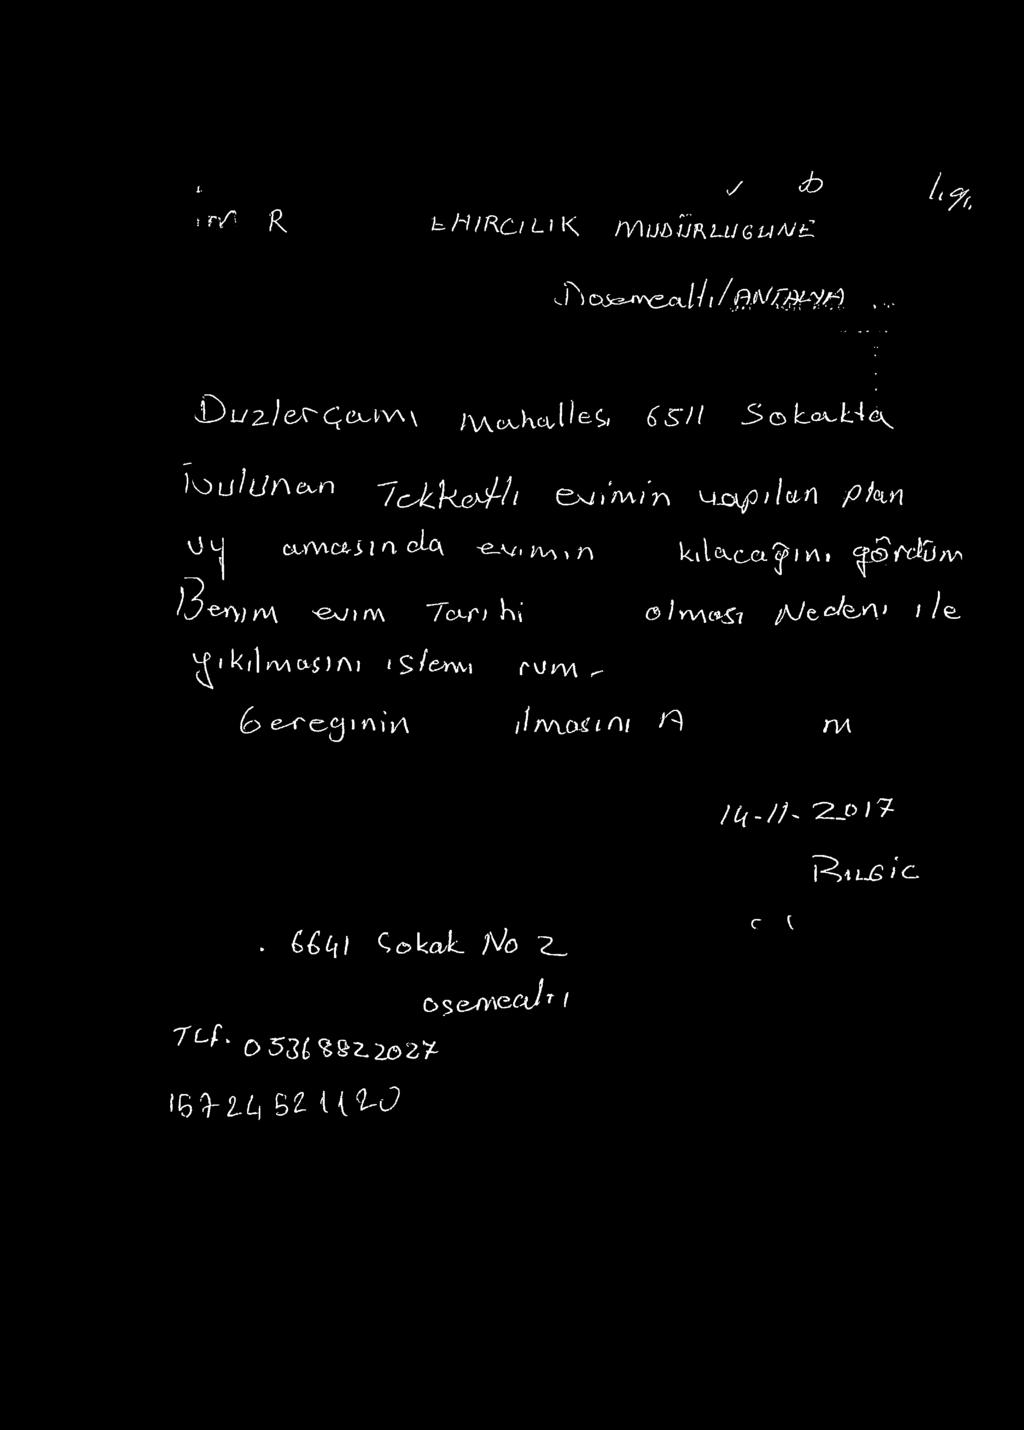 R EHIRCILIK MÜDÜRLUGUNE
Dosemealtı/ANTALYA
Duzlerçamı Mahallesi 6511 Sokakta
bulunan Tekkatlı evimin yapılan plan
uy amasında evimin kılacağını gördüm
Benim evim Tarihi olması Nedeni ile
yıkılmasını istemi rum-
Gereginin ılmasını A m
14-11-2017
BILGiC
6641 Sokak No 2
osemealtı
TLf. 05368822027
15724521120